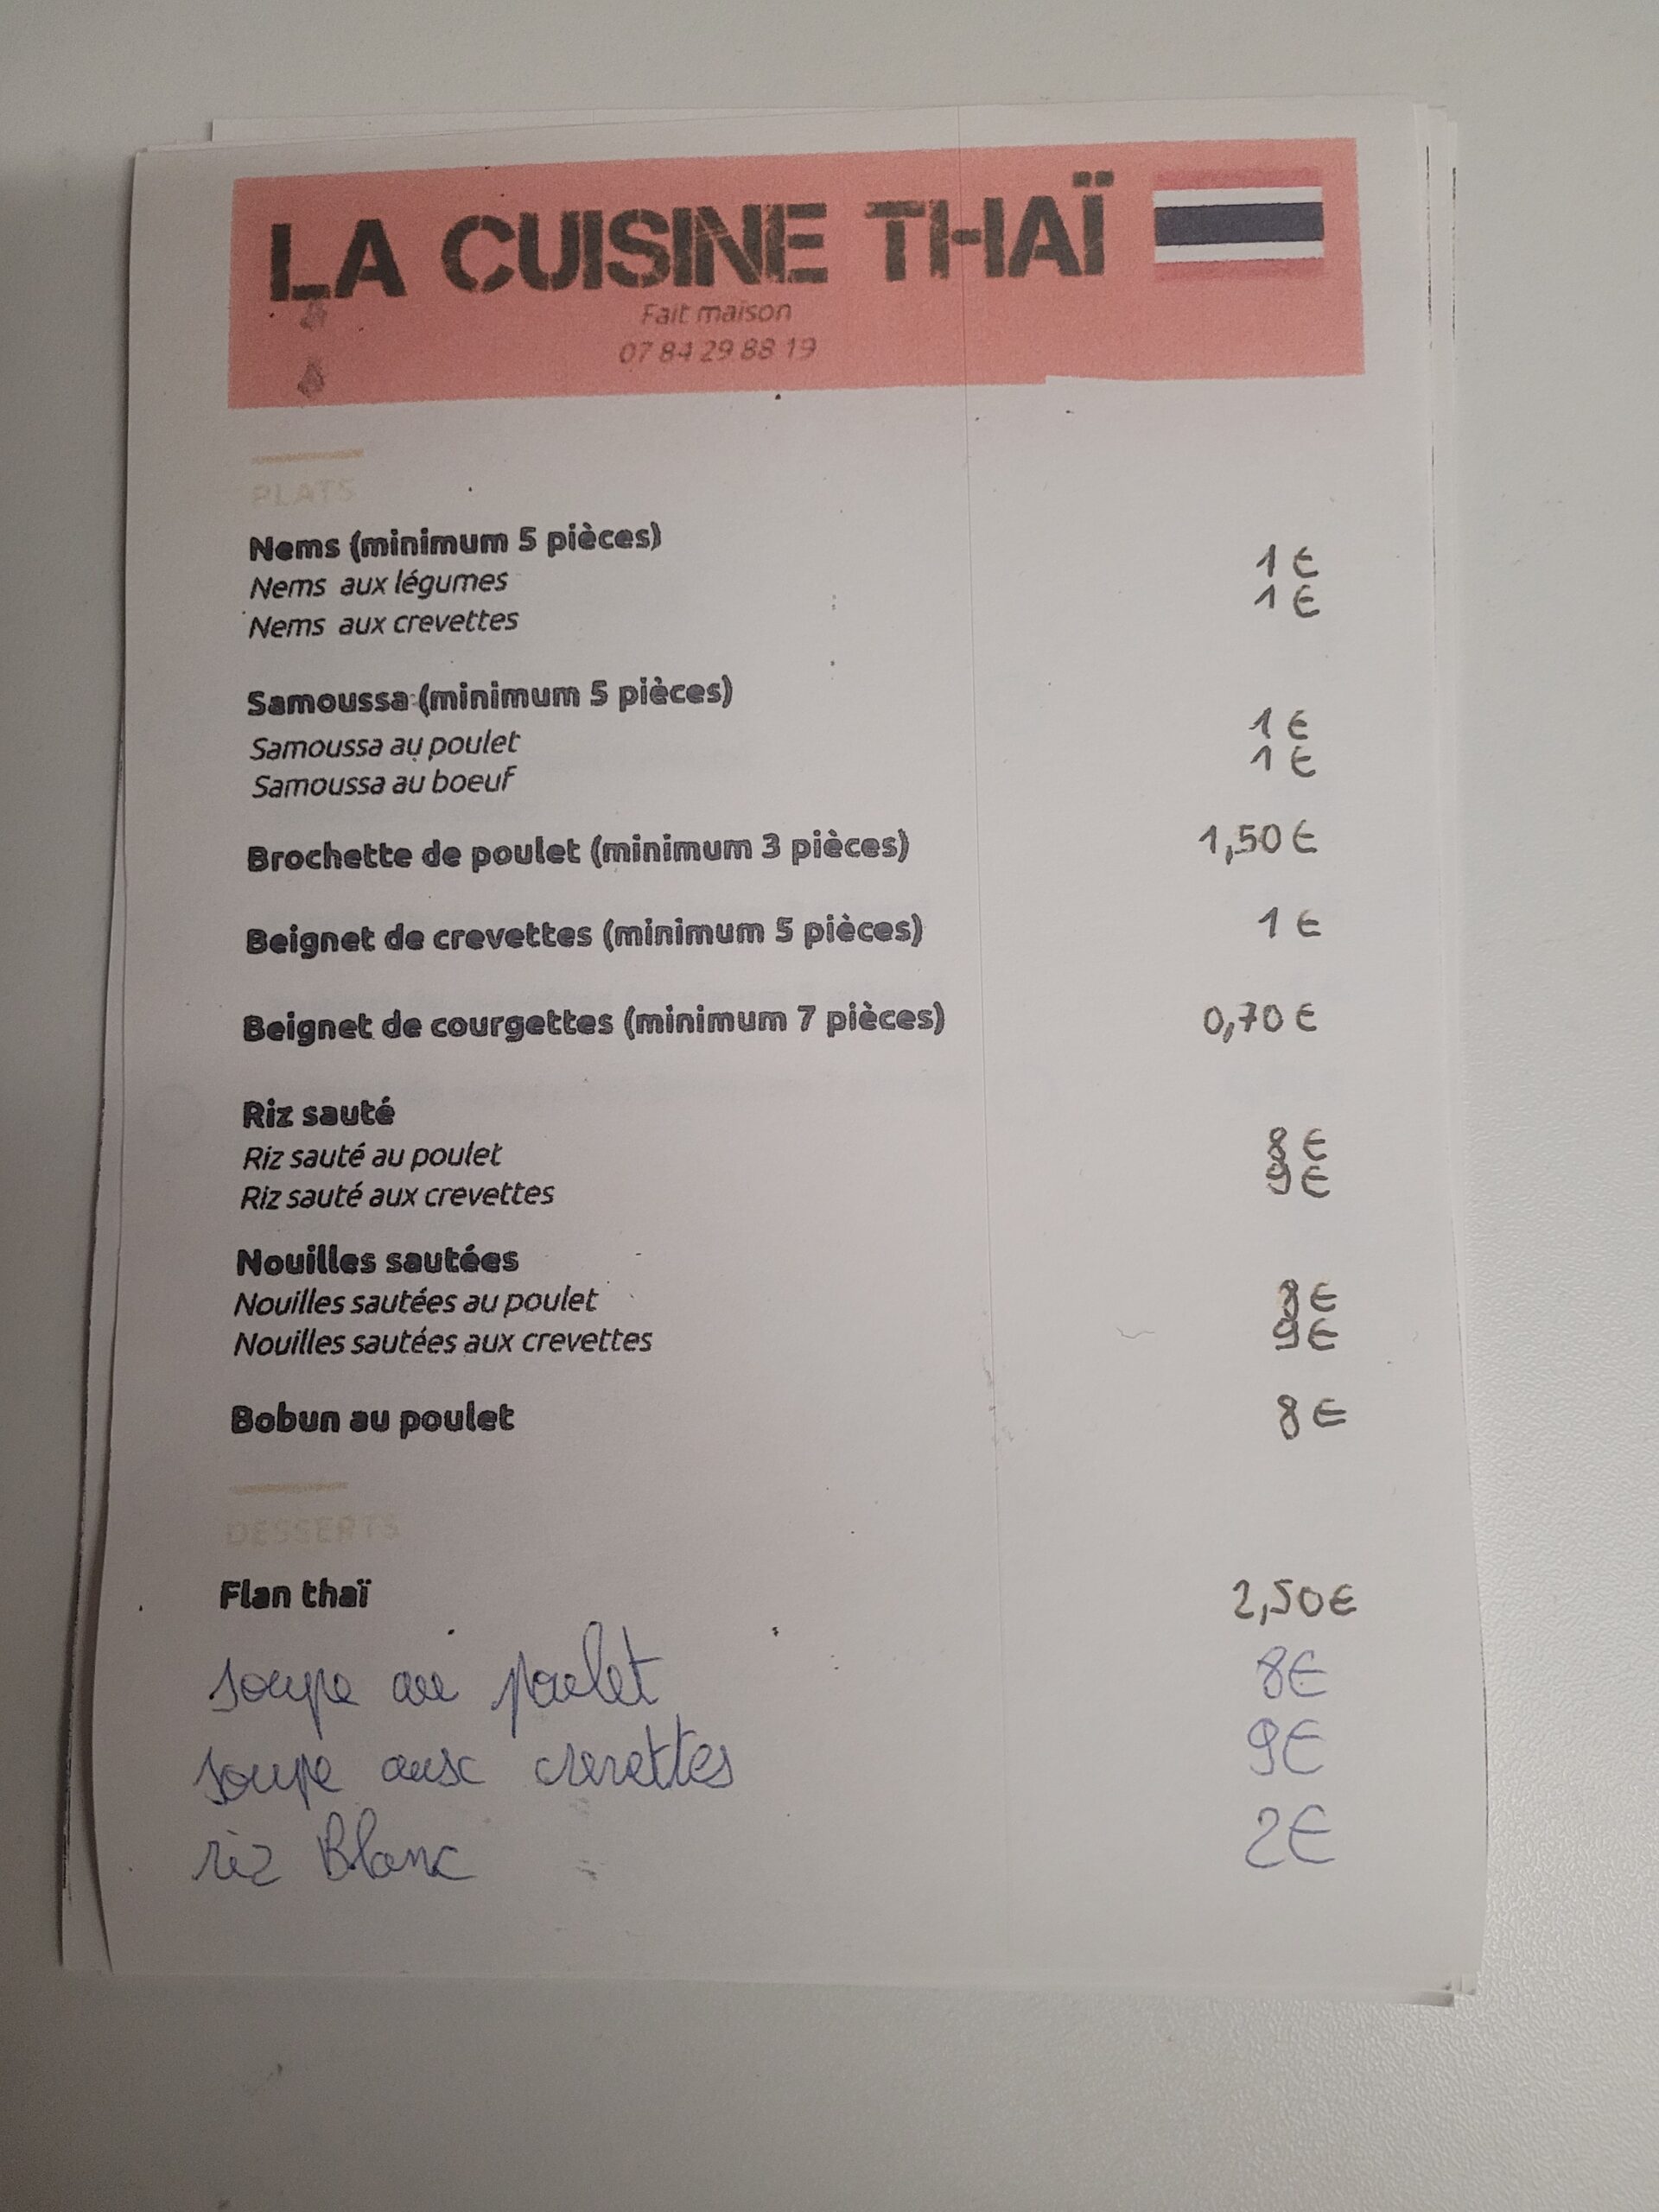 LA CUISINE THAÏ
Fait maison
07 84 29 88 19
PLATS
Nems (minimum 5 pièces)
Nems aux légumes 1 €
Nems aux crevettes 1 €
Samoussa (minimum 5 pièces)
Samoussa au poulet 1 €
Samoussa au boeuf 1 €
Brochette de poulet (minimum 3 pièces) 1,50 €
Beignet de crevettes (minimum 5 pièces) 1 €
Beignet de courgettes (minimum 7 pièces) 0,70 €
Riz sauté
Riz sauté au poulet 8 €
Riz sauté aux crevettes 9 €
Nouilles sautées
Nouilles sautées au poulet 8 €
Nouilles sautées aux crevettes 9 €
Bobun au poulet 8 €
DESSERTS
Flan thaï 2,50 €
soupe au poulet 8 €
soupe aux crevettes 9 €
riz Blanc 2 €